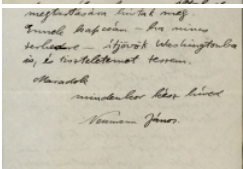 megtartására hívtak meg.
Ennek kapcsán – ha nincs
terhedre – átjövök Washingtonba
is, és tiszteletemet teszem.
Maradok
mindenkor kész híved
Neumann János.